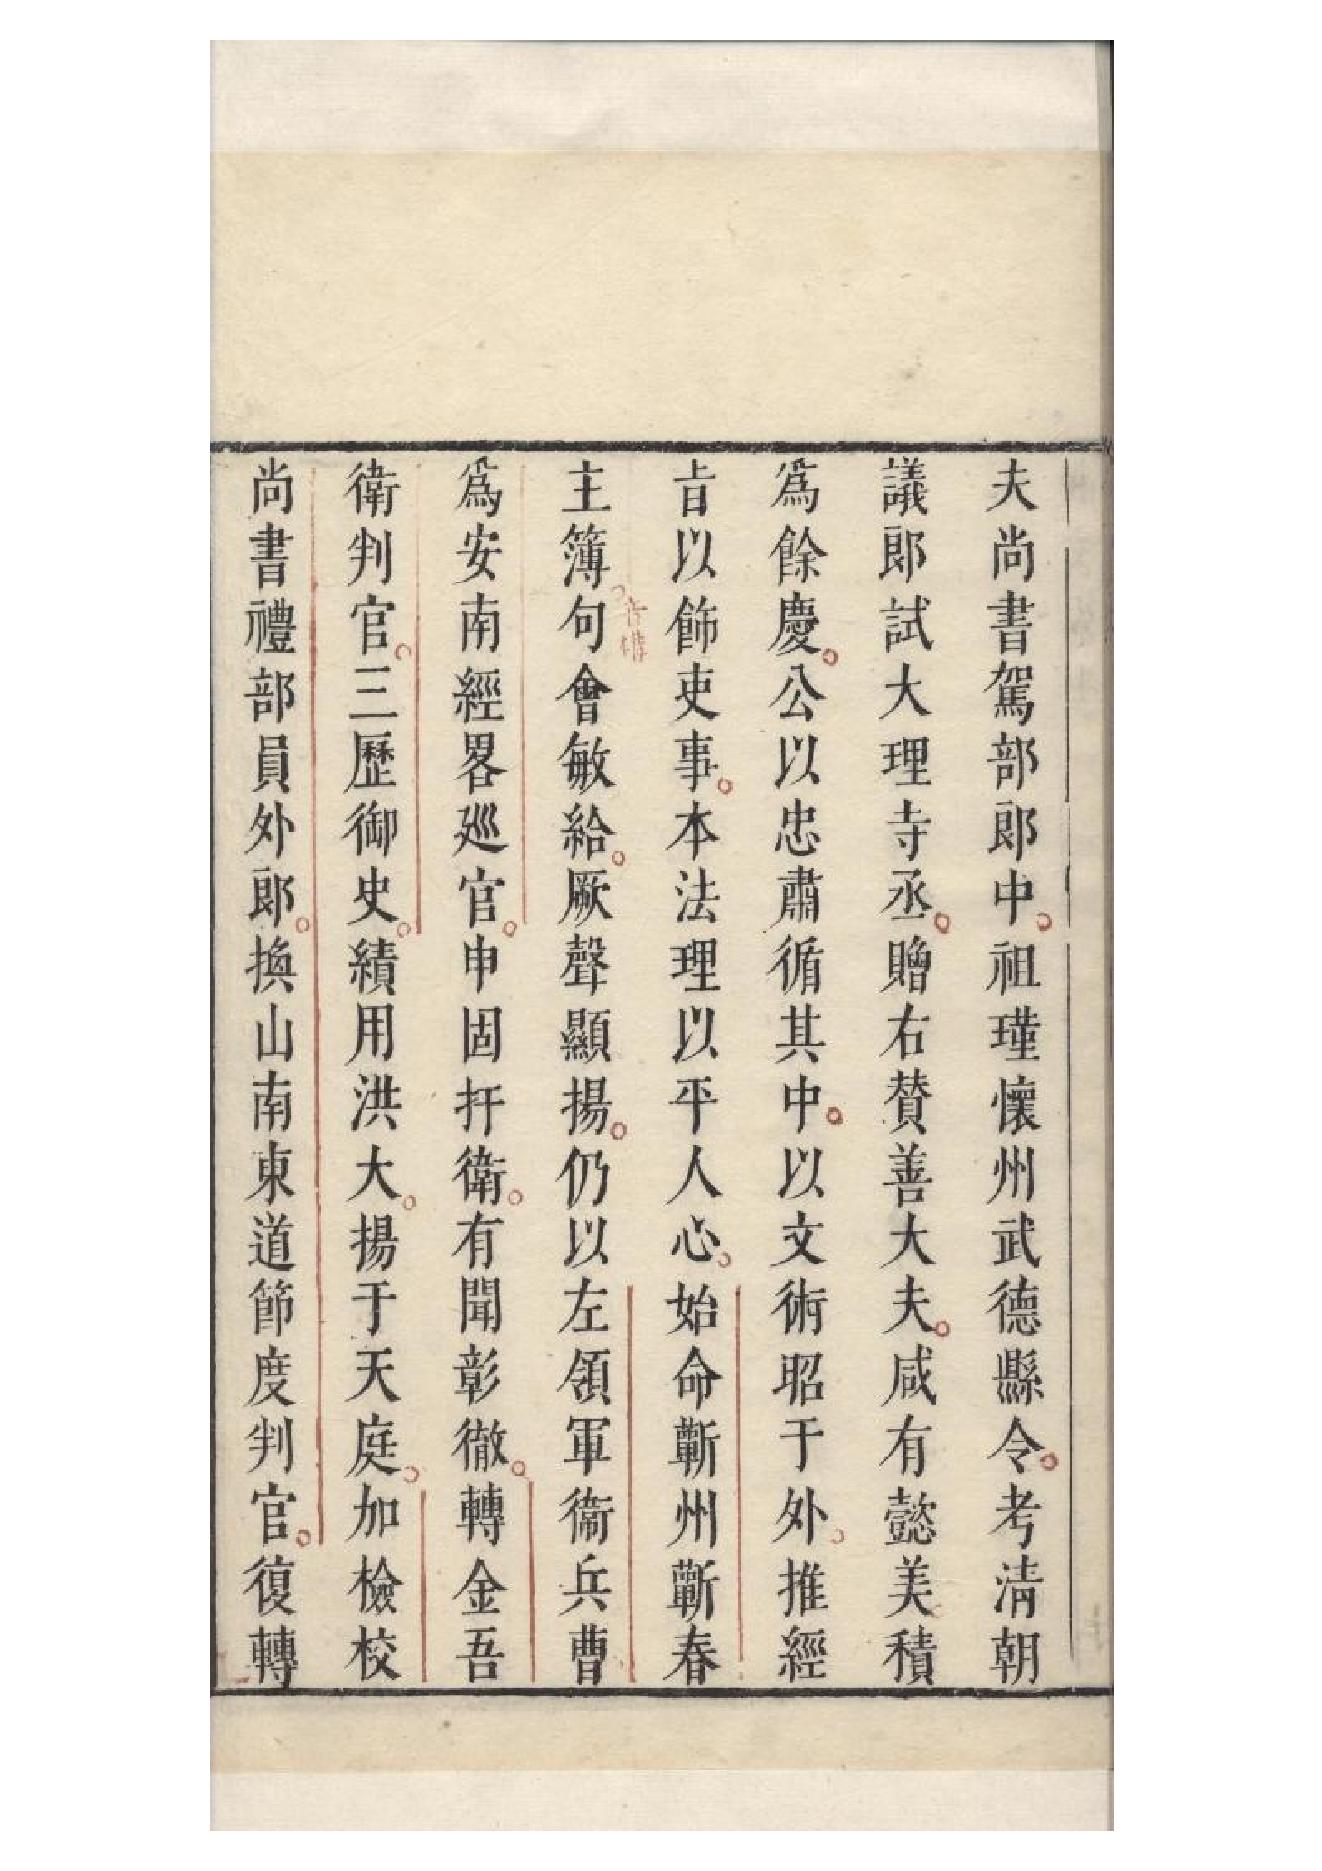 夫尚書駕部郎中祖瑾懷州武德縣令考淸朝
議郎試大理寺丞贈右賛善大夫咸有懿美積
爲餘慶公以忠肅循其中以文術昭于外推經
㫖以飾吏事本法理以平人心始命蘄州蘄春
主簿句會敏給厥聲顯揚仍以左領軍衛兵曹
爲安南經畧廵官申固扞衛有聞彰徹轉金吾
衛判官三歷御史績用洪大揚于天庭加檢校
尚書禮部員外郎換山南東道節度判官復轉
音搆